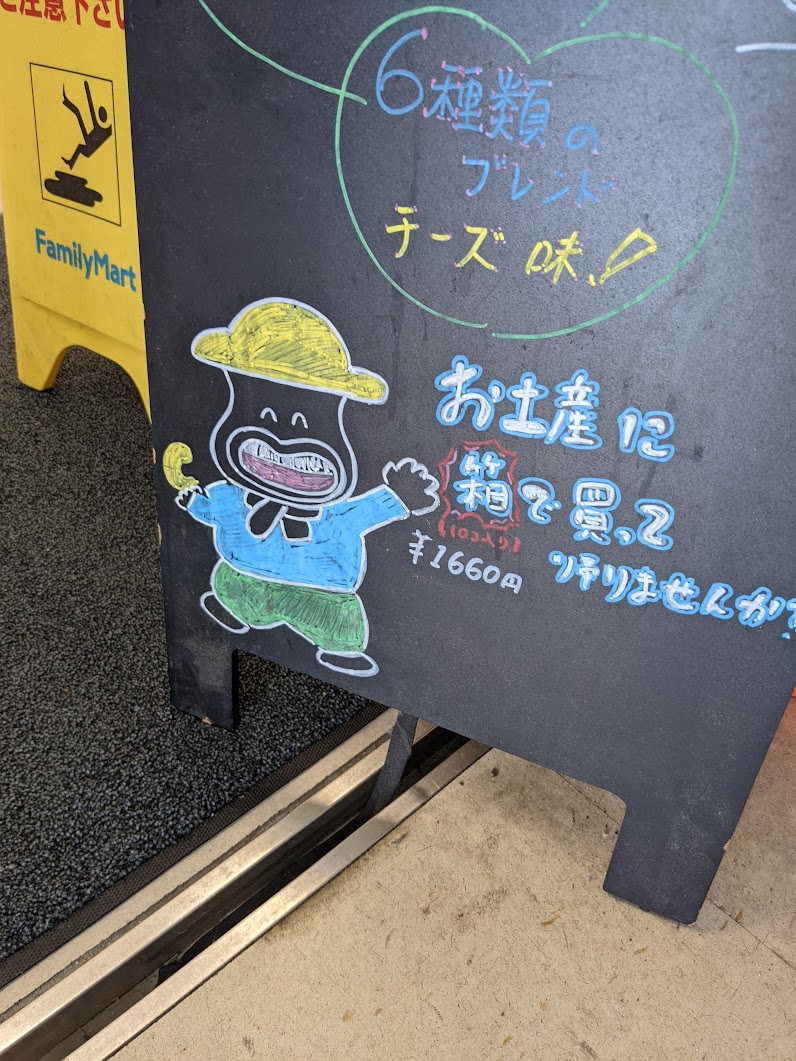 ご注意下さい
FamilyMart
6種類の
ブレンド
チーズ味!
お土産に
箱で買って
(10コ入り)
¥1660円
帰りませんか?